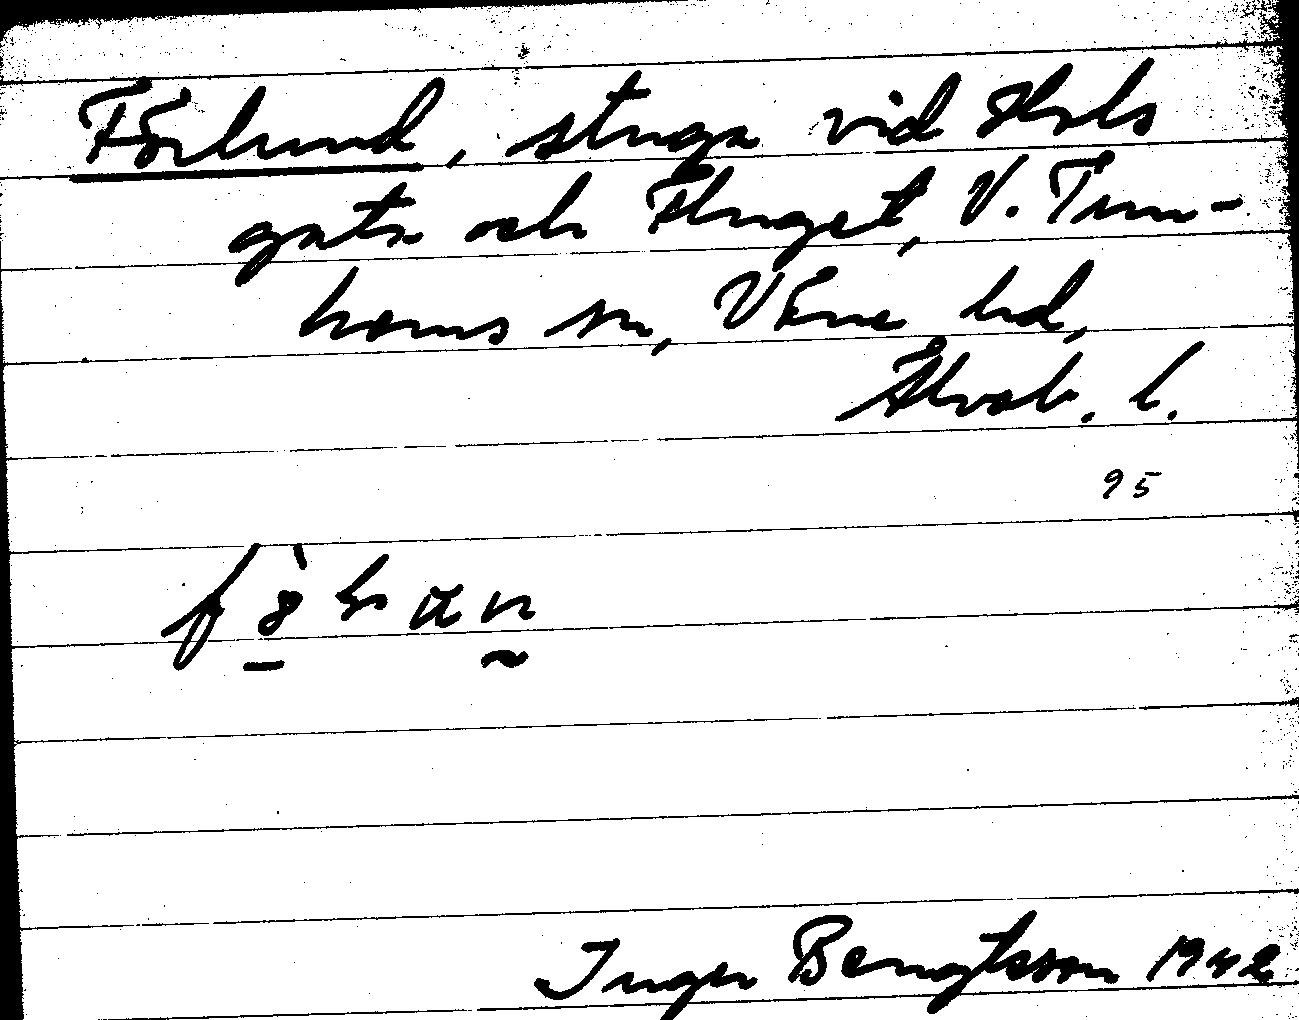 Förlund, stuga vid Hols
gata och Fluget, V. Tun-
hems sn, Väne hd,
Älvsb. l.
95
Inger Bengtsson 1942